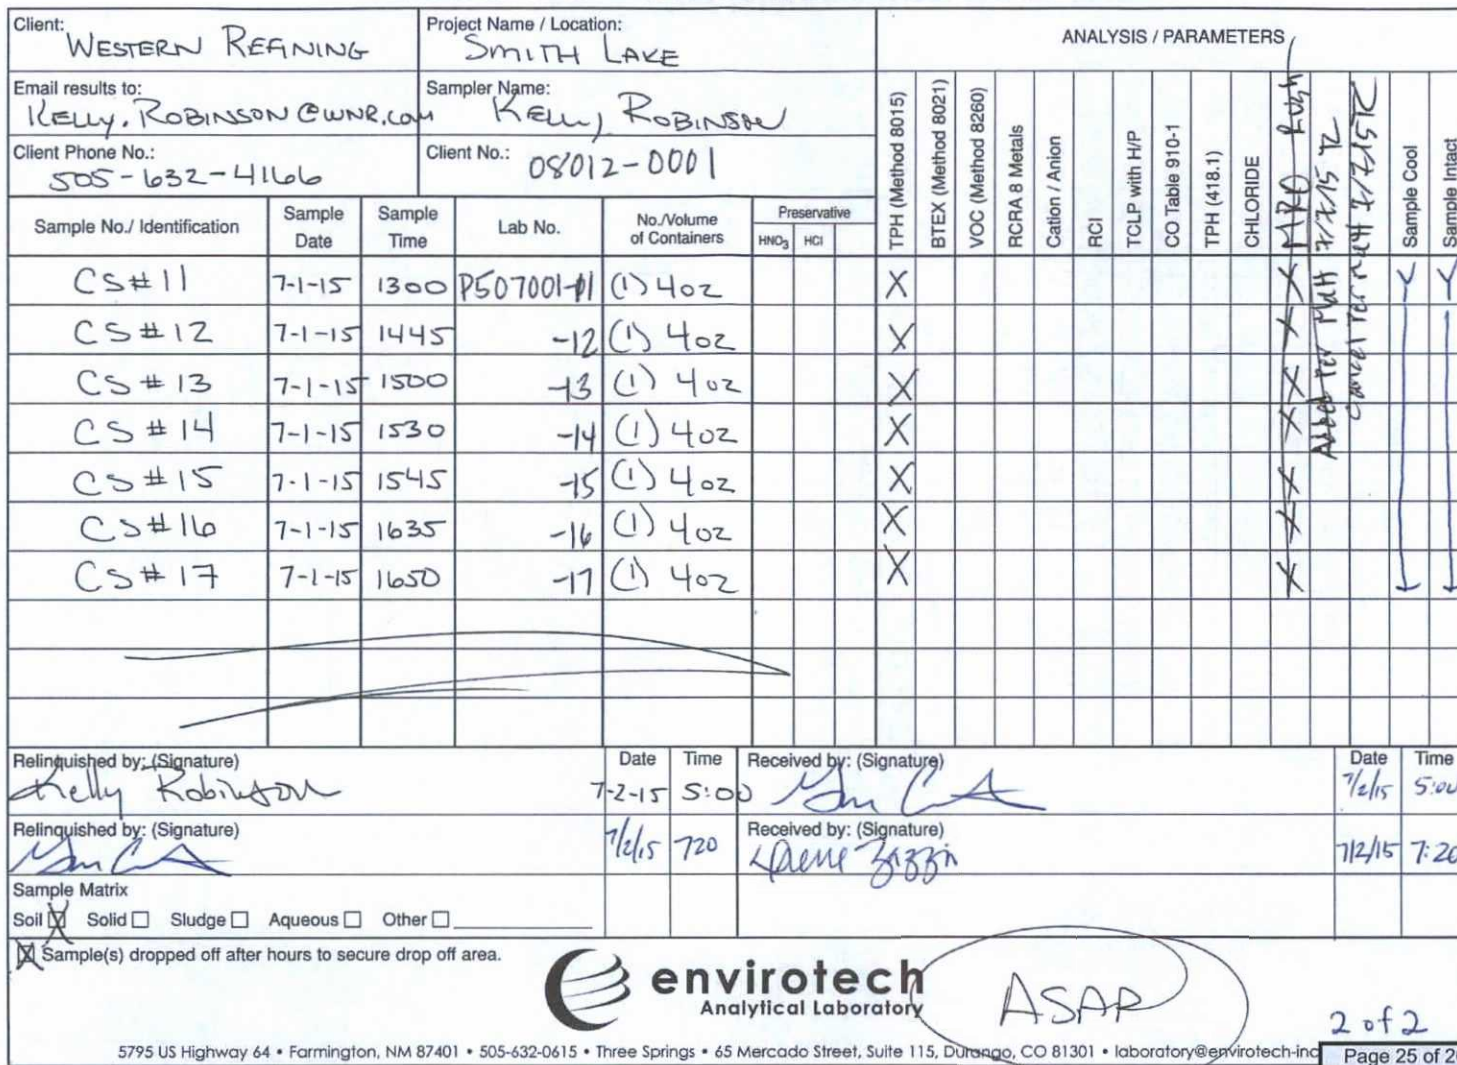 Client: WESTERN REFINING
Project Name / Location: SMITH LAKE
ANALYSIS / PARAMETERS
Email results to: KELLY.ROBINSON@WNR.COM
Sampler Name: KELLY ROBINSON
Client Phone No.: 505-632-4166
Client No.: 08012-0001
Sample No./ Identification
Sample Date
Sample Time
Lab No.
No./Volume of Containers
Preservative
HNO3
HCl
TPH (Method 8015)
BTEX (Method 8021)
VOC (Method 8260)
RCRA 8 Metals
Cation / Anion
RCI
TCLP with H/P
CO Table 910-1
TPH (418.1)
CHLORIDE
MRO Rush
Added Per 7/7/15
Cancel Per 7/7/15
Sample Cool
Sample Intact
CS#11 7-1-15 1300 P507001-11 (1) 4oz X X Y Y
CS#12 7-1-15 1445 -12 (1) 4oz X X
CS#13 7-1-15 1500 -13 (1) 4oz X X
CS#14 7-1-15 1530 -14 (1) 4oz X X
CS#15 7-1-15 1545 -15 (1) 4oz X X
CS#16 7-1-15 1635 -16 (1) 4oz X X
CS#17 7-1-15 1650 -17 (1) 4oz X X
Relinquished by: (Signature) Kelly Robinson
Date 7-2-15
Time 5:00
Received by: (Signature)
Date 7/2/15
Time 5:00
Relinquished by: (Signature)
7/2/15 720
Received by: (Signature)
7/2/15 7:20
Sample Matrix
Soil X Solid Sludge Aqueous Other
X Sample(s) dropped off after hours to secure drop off area.
envirotech
Analytical Laboratory
ASAP
2 of 2
5795 US Highway 64 • Farmington, NM 87401 • 505-632-0615 • Three Springs • 65 Mercado Street, Suite 115, Durango, CO 81301 • laboratory@envirotech-inc
Page 25 of 2